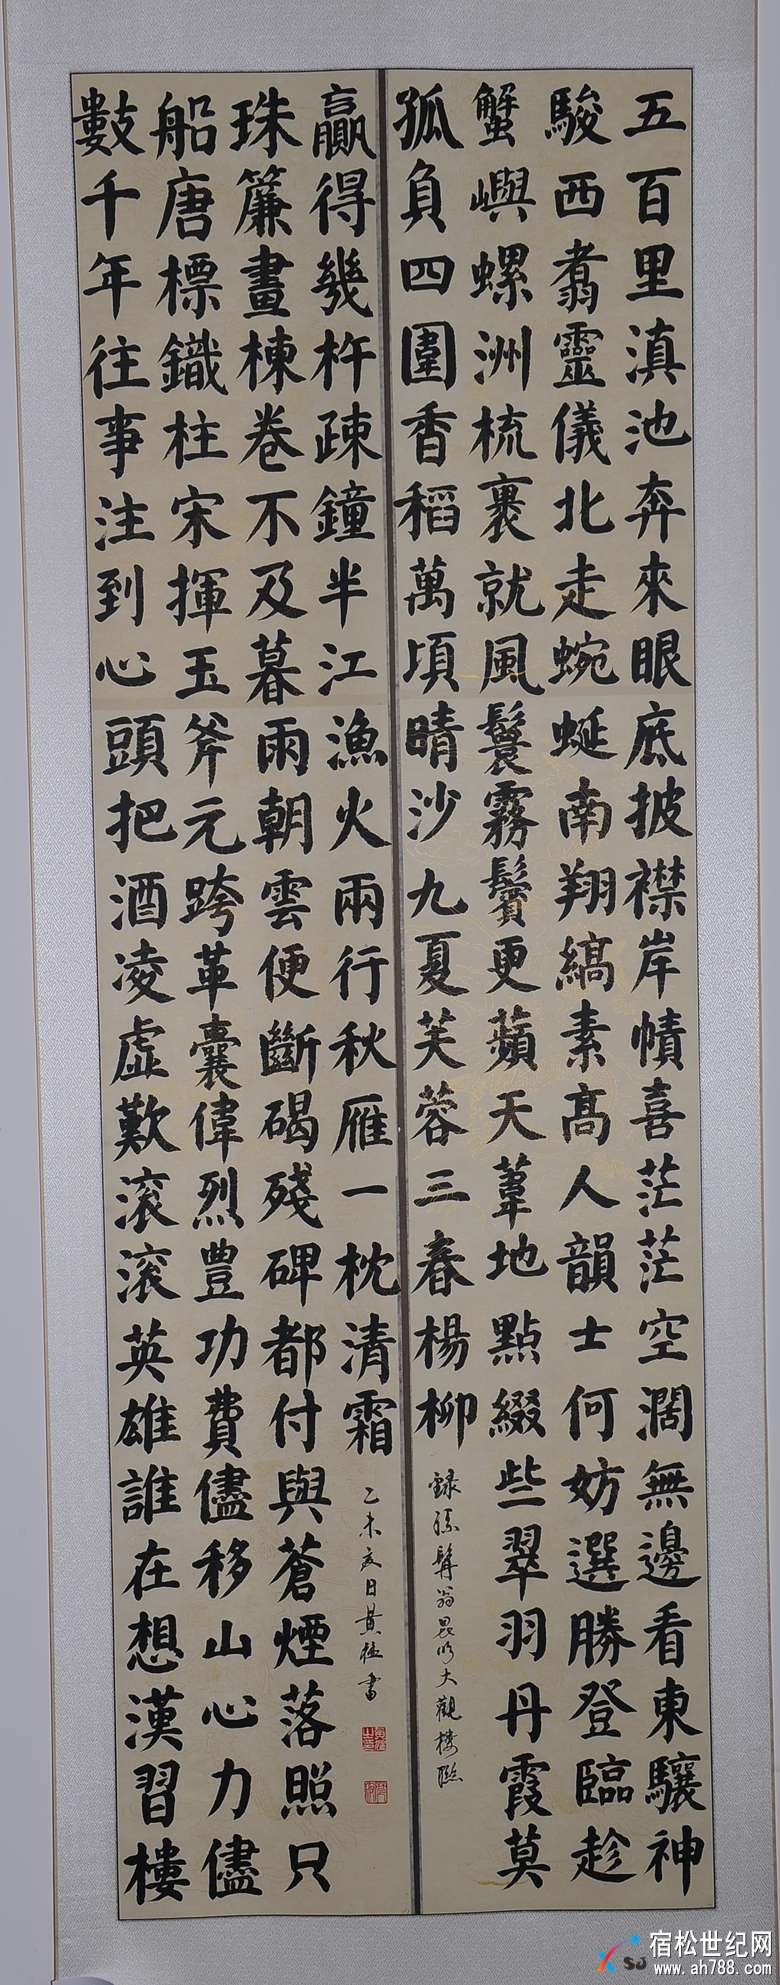 五百里滇池奔來眼底披襟岸幘喜茫茫空闊無邊看東驤神
駿西翥靈儀北走蜿蜒南翔縞素高人韻士何妨選勝登臨趁
蟹嶼螺洲梳裹就風鬟霧鬢更蘋天葦地點綴些翠羽丹霞莫
孤負四圍香稻萬頃晴沙九夏芙蓉三春楊柳
錄孫髯翁昆明大觀樓聯
數千年往事注到心頭把酒凌虛歎滚滚英雄誰在想漢習樓
船唐標鐵柱宋揮玉斧元跨革囊偉烈豐功費儘移山心力儘
珠簾畫棟卷不及暮雨朝雲便斷碣殘碑都付與蒼煙落照只
贏得幾杵疎鐘半江漁火兩行秋雁一枕清霜
乙未夏日黃書
SJ 宿松世纪网
www.ah788.com